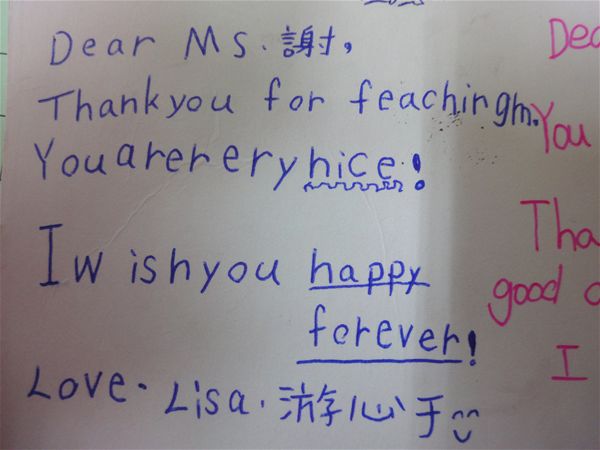 Dear Ms. 謝,
Thank you for feaching m.
You are rery nice!
I wish you happy
forever!
Love. Lisa. 游心于
Dea
You
Tha
good
I